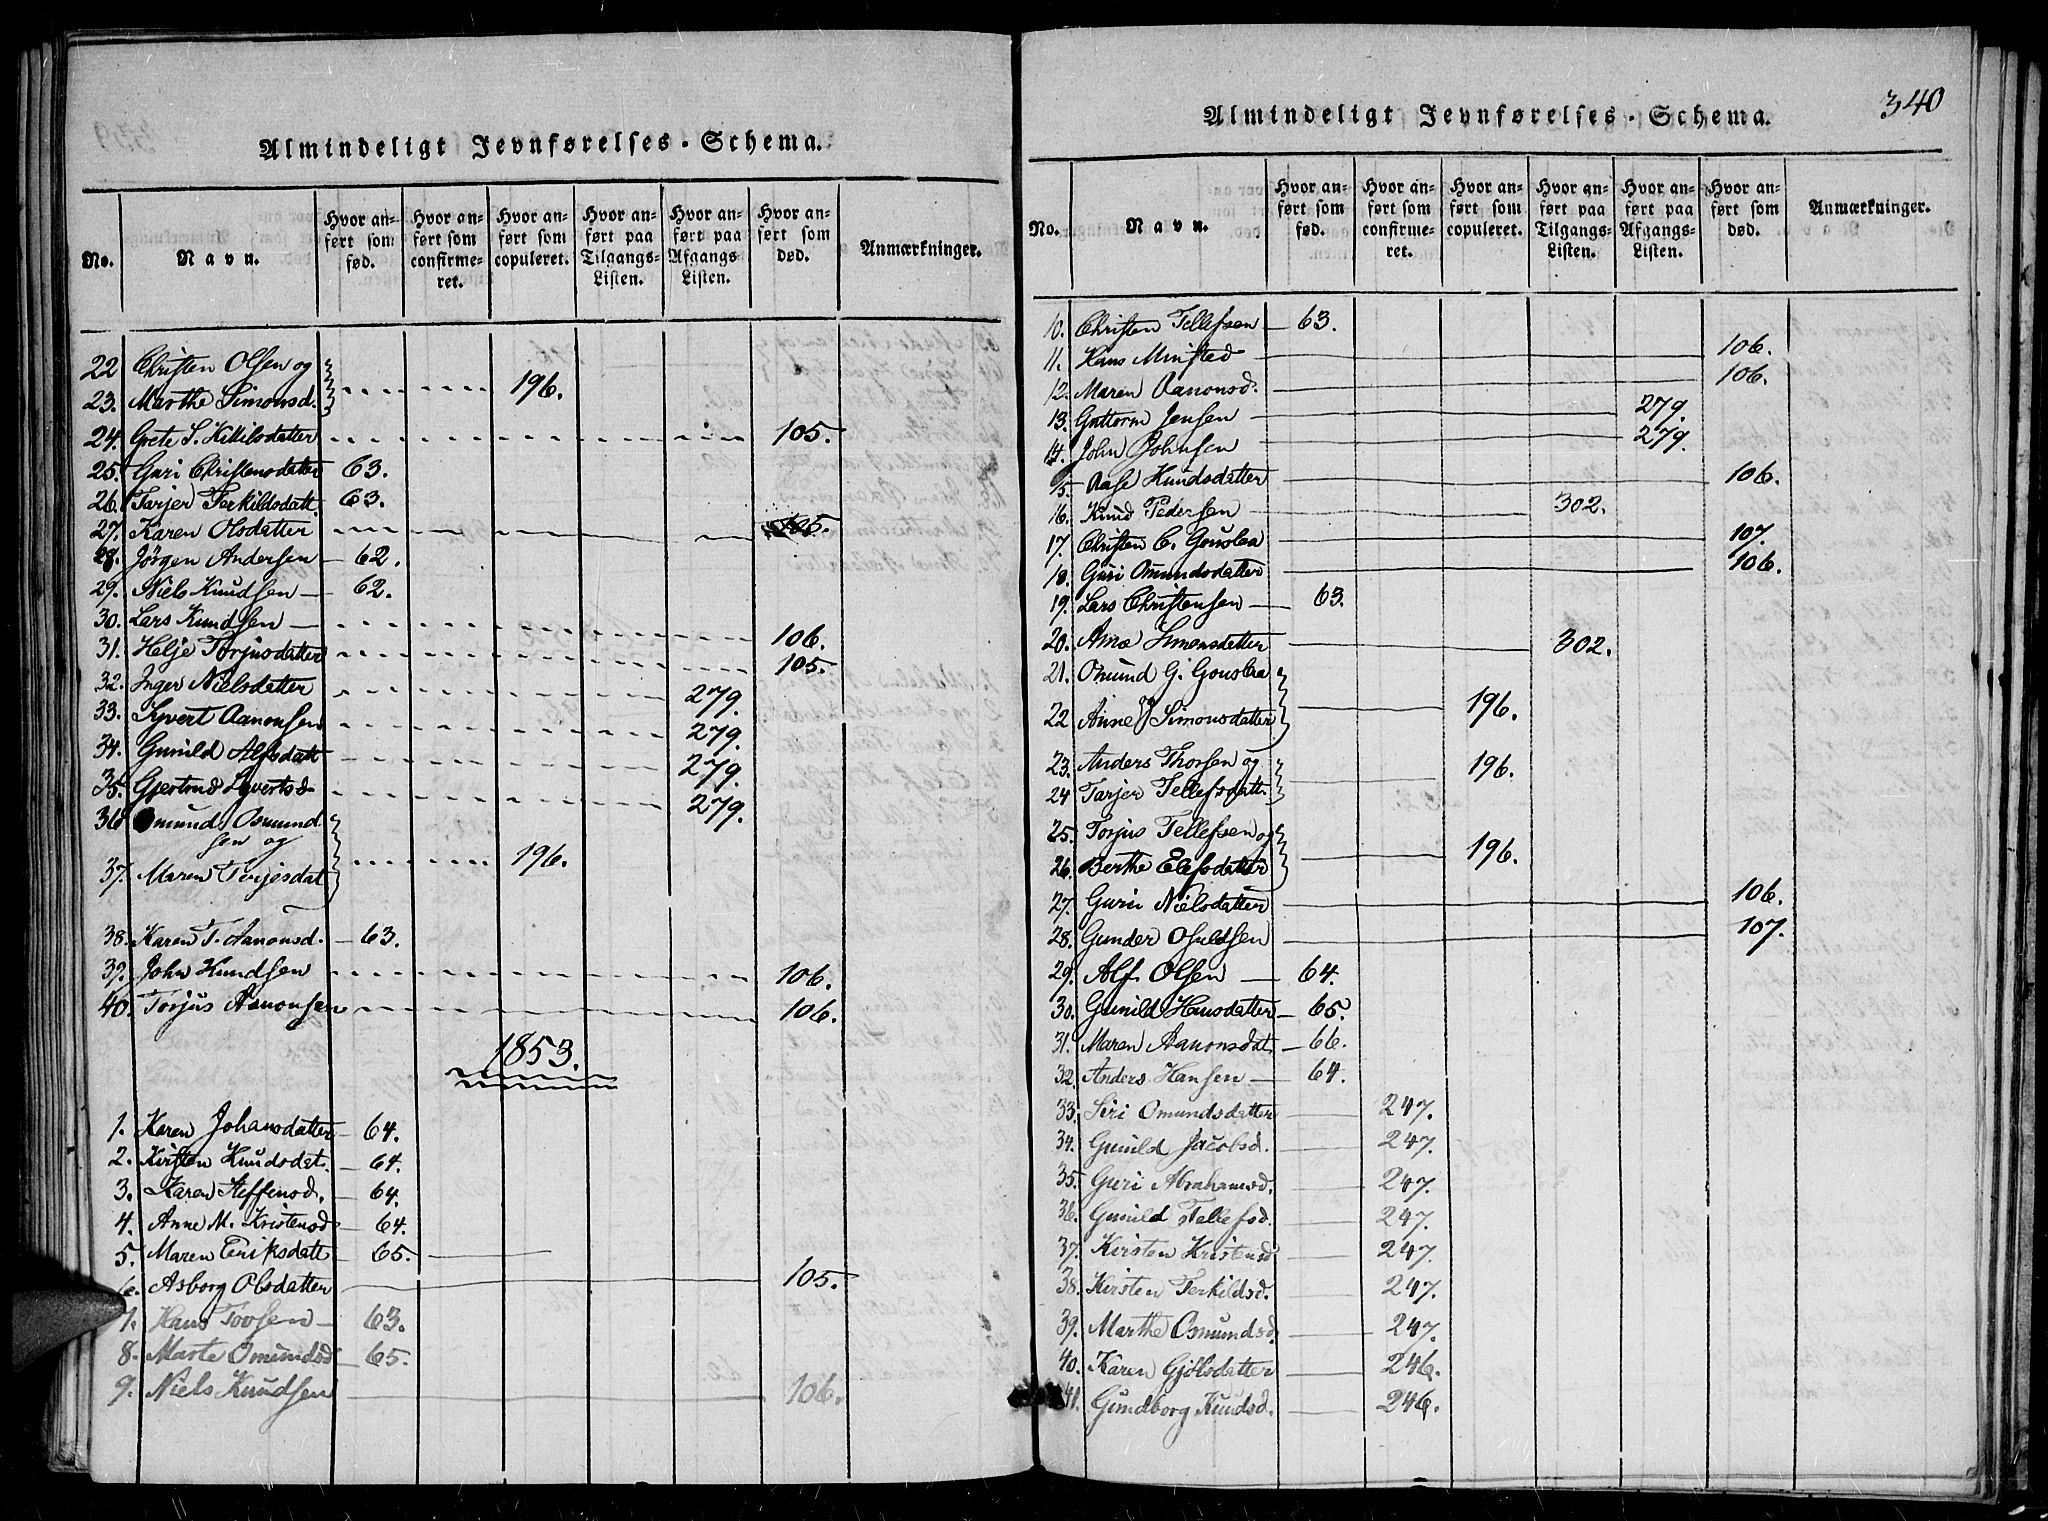 Almindeligt Jevnførelses-Schema.
No. Navn. Hvor anført som fød. Hvor anført som confirmeret. Hvor anført som copuleret. Hvor anført paa Tilgangs-Listen. Hvor anført paa Afgangs-Listen. Hvor anført som død. Anmærkninger.
22 Christen Olsen og
23. Marthe Simonsd. 196.
24. Grete S. Kittilsdatter 105.
25. Guri Christensdatter 63.
26. Tarjer Terkildsdatt. 63.
27. Karen Olsdatter 105.
28. Jørgen Andersen 62.
29. Niels Knudsen 62.
30. Lars Knudsen 106.
31. Helje Torjusdatter 105.
32. Inger Nielsdatter 279.
33. Syvert Aanonsen 279.
34. Gunild Alfsdatt 279.
35. Gjertrud Syvertsd 279.
36 Omund Osmund
sen og 196.
37. Maren Terjesdat
38. Karen T. Aanonsd. 63.
39. John Knudsen 106.
40. Torjus Aanonsen 106.
1853.
1. Karen Johansdatter 64.
2. Kirsten Knudsdat. 64.
3. Karen Steffensd. 64.
4. Anne M. Kristensd 64.
5. Maren Eriksdatt 65.
6. Asborg Olsdatter 105.
7. Hans Tovsen 63.
8. Marte Omundsd 65.
9. Niels Knudsen 106.
340
Almindeligt Jevnførelses-Schema.
No. Navn. Hvor anført som fød. Hvor anført som confirmeret. Hvor anført som copuleret. Hvor anført paa Tilgangs-Listen. Hvor anført paa Afgangs-Listen. Hvor anført som død. Anmærkninger.
10. Christen Tellefsen 63.
11. Hans 106.
12. Maren Aanonsd. 106.
13. Guttorm Jensen 279.
14. John Johnsen 279.
15. Aase Knudsdatter 106.
16. Knud Pedersen 302.
17. Christen C. Gouslaa 107.
18. Guri Omundsdatter 106.
19. Lars Christensen 63.
20. Anne Simonsdatter 302.
21. Omund G. Gouslaa
og 196.
22 Anne Simonsdatter
23. Anders Thorsen og 196.
24 Tarjer Tellefsdatt.
25. Torjus Tellefsen og
26. Berthe Elefsdatter 196.
27. Guri Nielsdatter 106.
28. Gunder Osuldsen 107.
29. Alf Olsen 64.
30. Gunild Hansdatter 65.
31. Maren Aanonsdat. 66.
32. Anders Hansen 64.
33. Siri Omundsdatter 247.
34. Gunild Jacobsd. 247.
35. Guri Abrahamsd. 247.
36. Gunild Tellefsd. 247.
37. Kirsten Kristensd 247.
38. Kirsten Terkildsd. 247.
39. Marthe Osmundsd. 247.
40. Karen Gjølsdatter 246.
41. Gundborg Knudsd. 246.